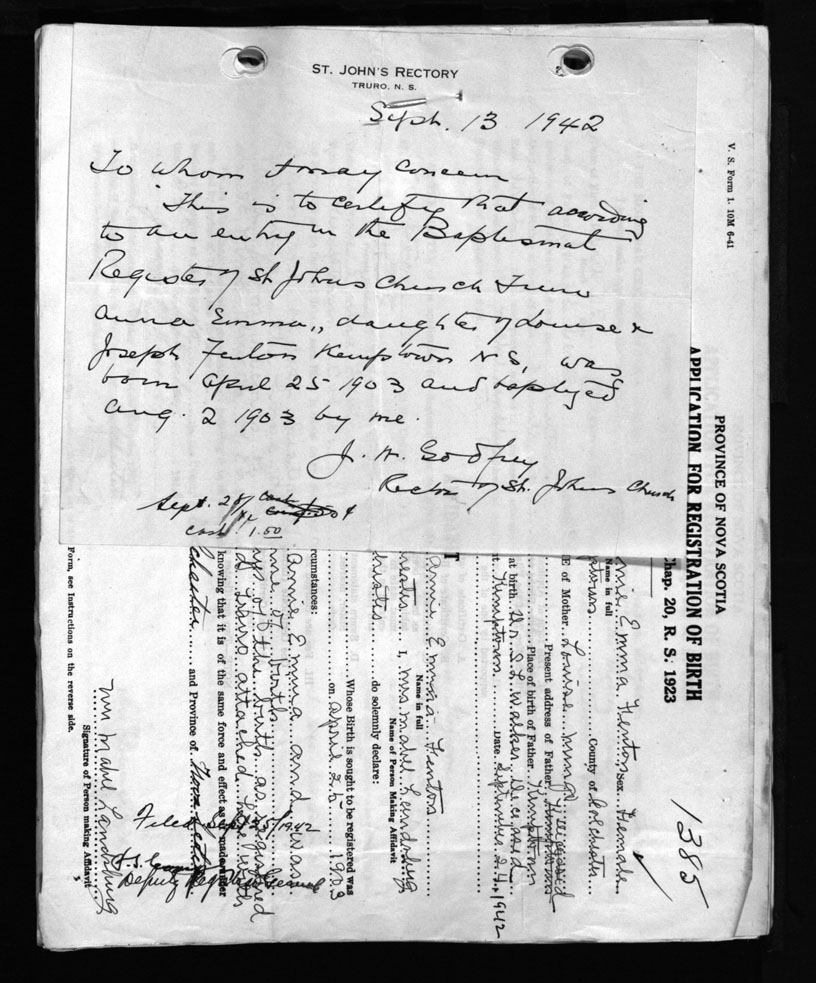 ST. JOHN'S RECTORY
TRURO, N. S.
Sept. 13 1942
To whom it may concern
This is to certify that according
to an entry in the Baptismal
Register of St Johns Church Truro
Anna Emma, daughter of Louise &
Joseph Fenton Kemptown N S, was
born April 25 1903 and baptized
Aug. 2 1903 by me.
J. W. Godfrey
Rector of St. Johns Church
Sept. 25/42 cash
cash 1.00
V. S. Form 1. 10M 6-41
PROVINCE OF NOVA SCOTIA
APPLICATION FOR REGISTRATION OF BIRTH
Chap. 20, R. S. 1923
1385
Emma Fenton Sex Female
Name in full
County of Colchester
of Mother Louise
Present address of Father Deceased
Place of birth of Father Kemptown
at birth Dr. S. L. Walker Deceased
Kemptown Date September 24, 1942
Annie Emma Fenton
Name in full
I, Mrs Mabel Landsburg
Name of Person Making Affidavit
do solemnly declare:
Whose Birth is sought to be registered was
on April 25 1903
circumstances:
Anna Emma and was
time of birth
of the birth as registered
attached
knowing that it is of the same force and effect as
and Province of Nova Scotia
Filed Sept 25/1942
Deputy Registrar General
Mrs Mabel Landsburg
Signature of Person making Affidavit
Form, see Instructions on the reverse side.